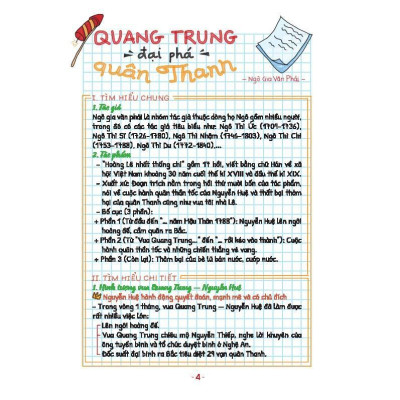 QUANG TRUNG
đại phá
quân Thanh
- Ngô Gia Văn Phái -
I. TÌM HIỂU CHUNG
1. Tác giả
Ngô gia văn phái là nhóm tác giả thuộc dòng họ Ngô gồm nhiều người,
trong đó có các tác giả tiêu biểu như: Ngô Thì Ức (1709-1736),
Ngô Thì Sĩ (1726-1780), Ngô Thì Nhậm (1746-1803), Ngô Thì Chí
(1753-1788), Ngô Thì Du (1772-1840),...
2. Tác phẩm
- "Hoàng Lê nhất thống chí" gồm 17 hồi, viết bằng chữ Hán về xã
hội Việt Nam khoảng 30 năm cuối thế kỉ XVIII và đầu thế kỉ XIX.
- Xuất xứ: Đoạn trích nằm trong hồi thứ mười bốn của tác phẩm,
nói về cuộc hành quân thần tốc của Nguyễn Huệ và thất bại thảm
hại của quân Thanh cũng như vua tôi nhà Lê.
- Bố cục (3 phần):
+ Phần 1 (Từ đầu đến "... năm Mậu Thân 1788"): Nguyễn Huệ lên ngôi
hoàng đế, cầm quân ra Bắc.
+ Phần 2 (Từ "Vua Quang Trung..." đến "... rồi kéo vào thành"): Cuộc
hành quân thần tốc và những chiến thắng vẻ vang.
+ Phần 3 (Còn lại): Thảm bại của bè lũ bán nước, cướp nước.
II. TÌM HIỂU CHI TIẾT
1. Hình tượng vua Quang Trung – Nguyễn Huệ
Nguyễn Huệ hành động quyết đoán, mạnh mẽ và có chủ đích
- Trong vòng 1 tháng, vua Quang Trung – Nguyễn Huệ đã làm được
rất nhiều việc lớn:
Lên ngôi hoàng đế.
Vua Quang Trung chiêu mộ Nguyễn Thiếp, nghe lời khuyên của
ông tuyển binh và tổ chức duyệt binh ở Nghệ An.
Đốc suất đại binh ra Bắc tiêu diệt 29 vạn quân Thanh.
- 4 -